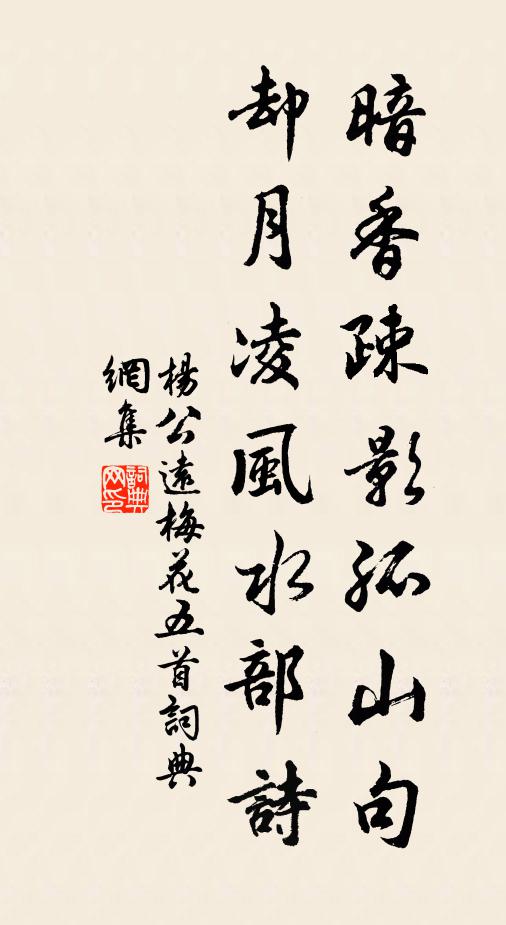 暗香疎影孤山句
却月凌風水部詩
楊公遠梅花五首詞典
網集
詞典
网印